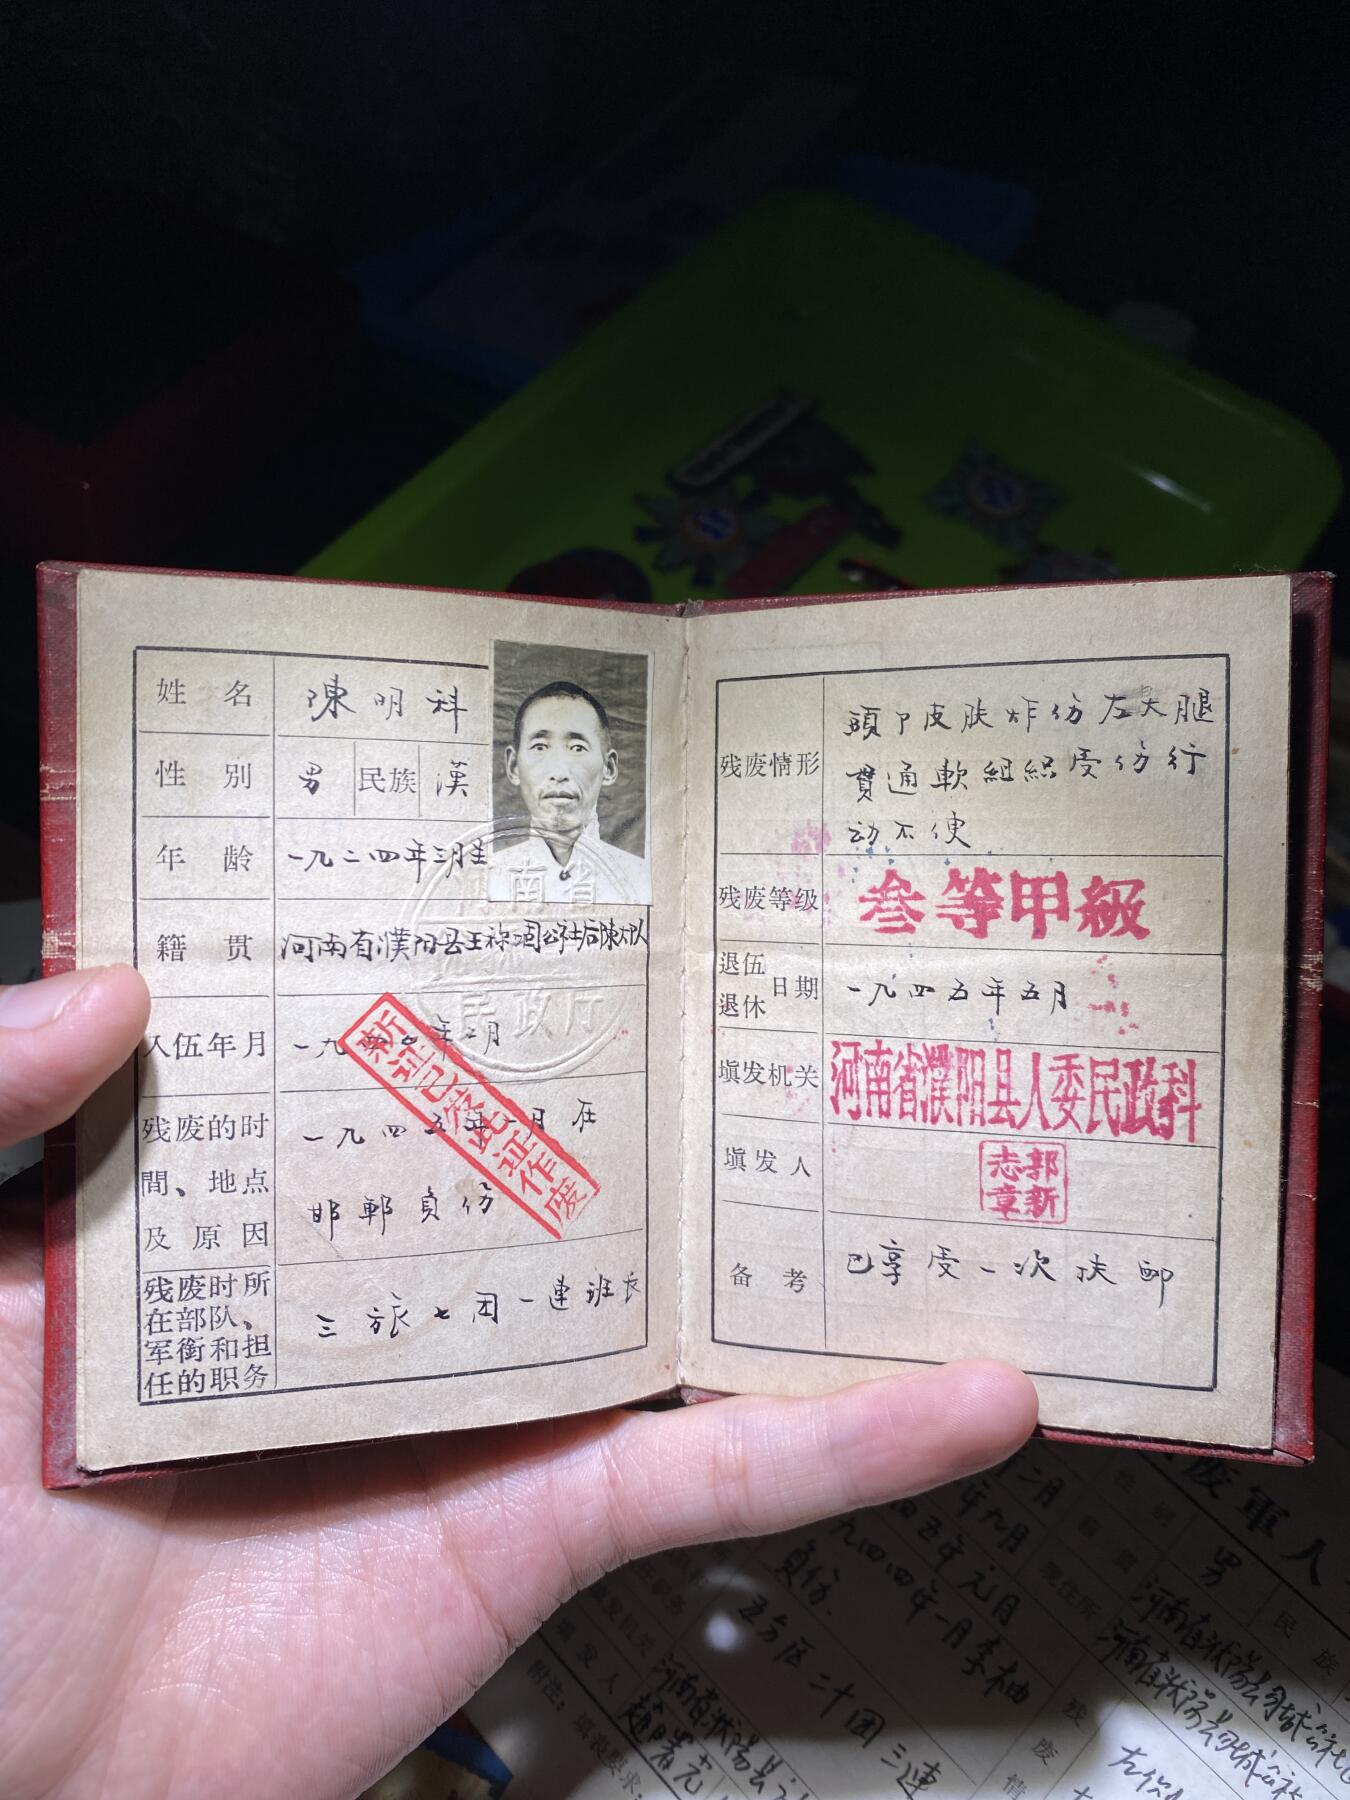 姓名 陳明科
性别 男 民族 漢
年龄 一九二四年三月生
籍贯 河南省濮阳县王称堌公社后陳大队
入伍年月 一九四〇年二月
残废的时間、地点及原因 一九四五年一月在
邯郸負伤
残废时所在部队、軍衔和担任的职务 三旅七团一連班长
新证已发此证作废
河南省
民政厅
残废情形 頭部皮肤炸伤左大腿
貫通軟組織受伤行
动不便
残废等级 叁等甲級
退伍退休日期 一九四五年五月
填发机关 河南省濮阳县人委民政科
填发人 郭新志章
备考 已享受一次抚卹
废軍人
性别 男 民族
籍貫
現住所
年九月
四五年元月
九四四年一月李柚
負伤
五分区二十团三連
填发机关
填发人 趙曙光
附注：填表要求：
残废情